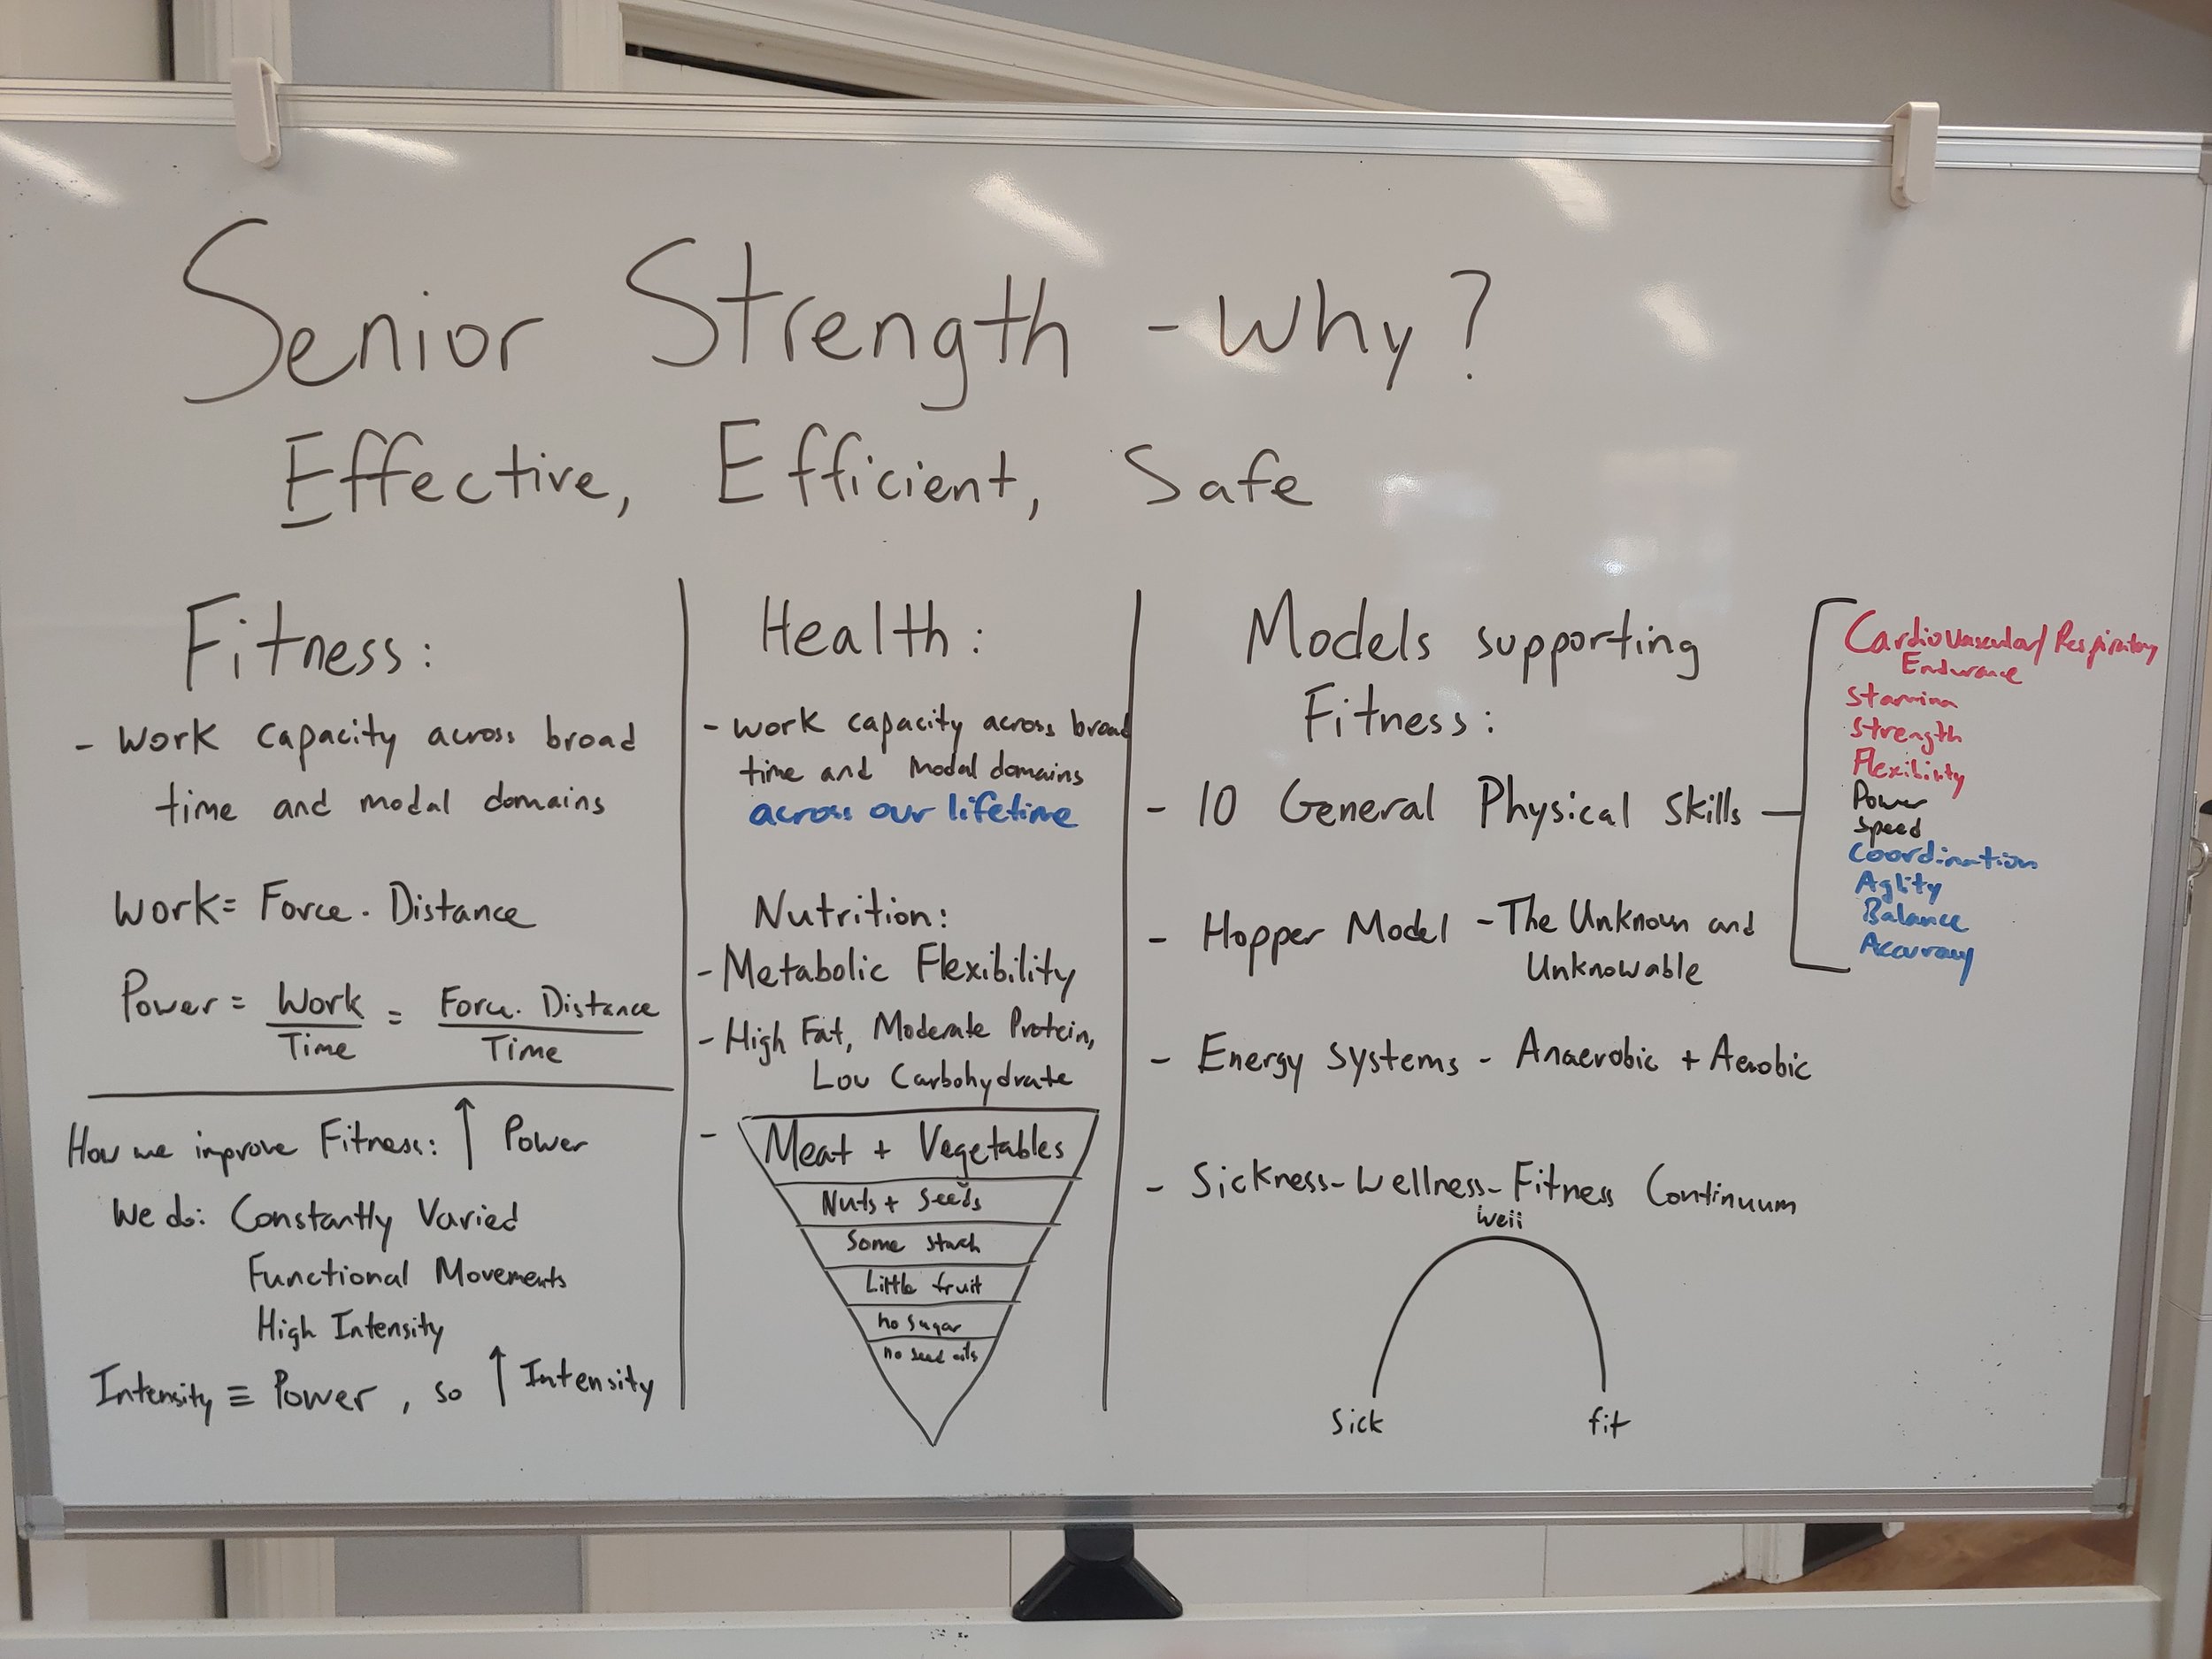 Senior Strength - Why?
Effective, Efficient, Safe
Fitness:
- Work capacity across broad
time and modal domains
Work = Force · Distance
Power = Work / Time = Force · Distance / Time
How we improve Fitness: ↑ Power
We do: Constantly Varied
Functional Movements
High Intensity
Intensity ≡ Power, so ↑ Intensity
Health:
- Work capacity across broad
time and modal domains
across our lifetime
Nutrition:
- Metabolic Flexibility
- High Fat, Moderate Protein,
Low Carbohydrate
- Meat + Vegetables
Nuts + Seeds
Some starch
Little fruit
no sugar
no seed oils
Models supporting
Fitness:
- 10 General Physical Skills
Cardiovascular/Respiratory
Endurance
Stamina
Strength
Flexibility
Power
Speed
Coordination
Aglity
Balance
Accuracy
- Hopper Model - The Unknown and
Unknowable
- Energy Systems - Anaerobic + Aerobic
- Sickness-Wellness-Fitness Continuum
well
Sick
fit